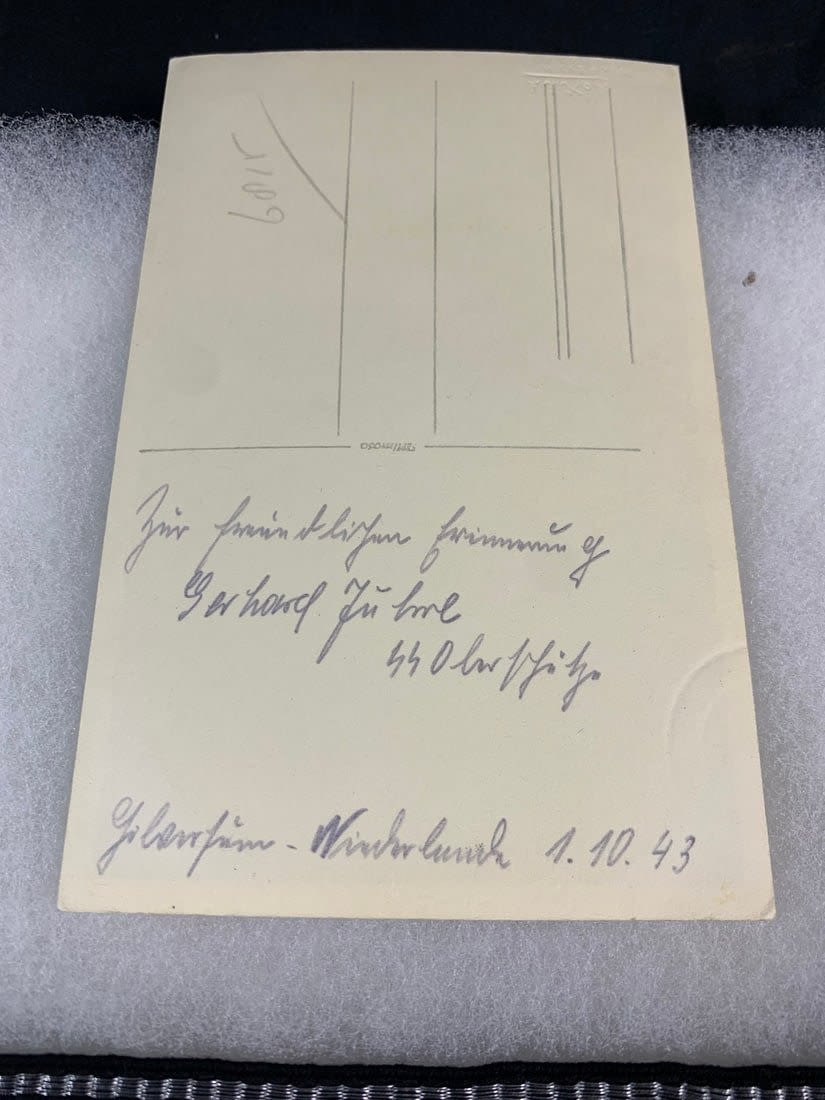 Zur freundlichen Erinnerung
Gerhard
SS Oberschütze
Hilversum - Niederlande 1.10.43